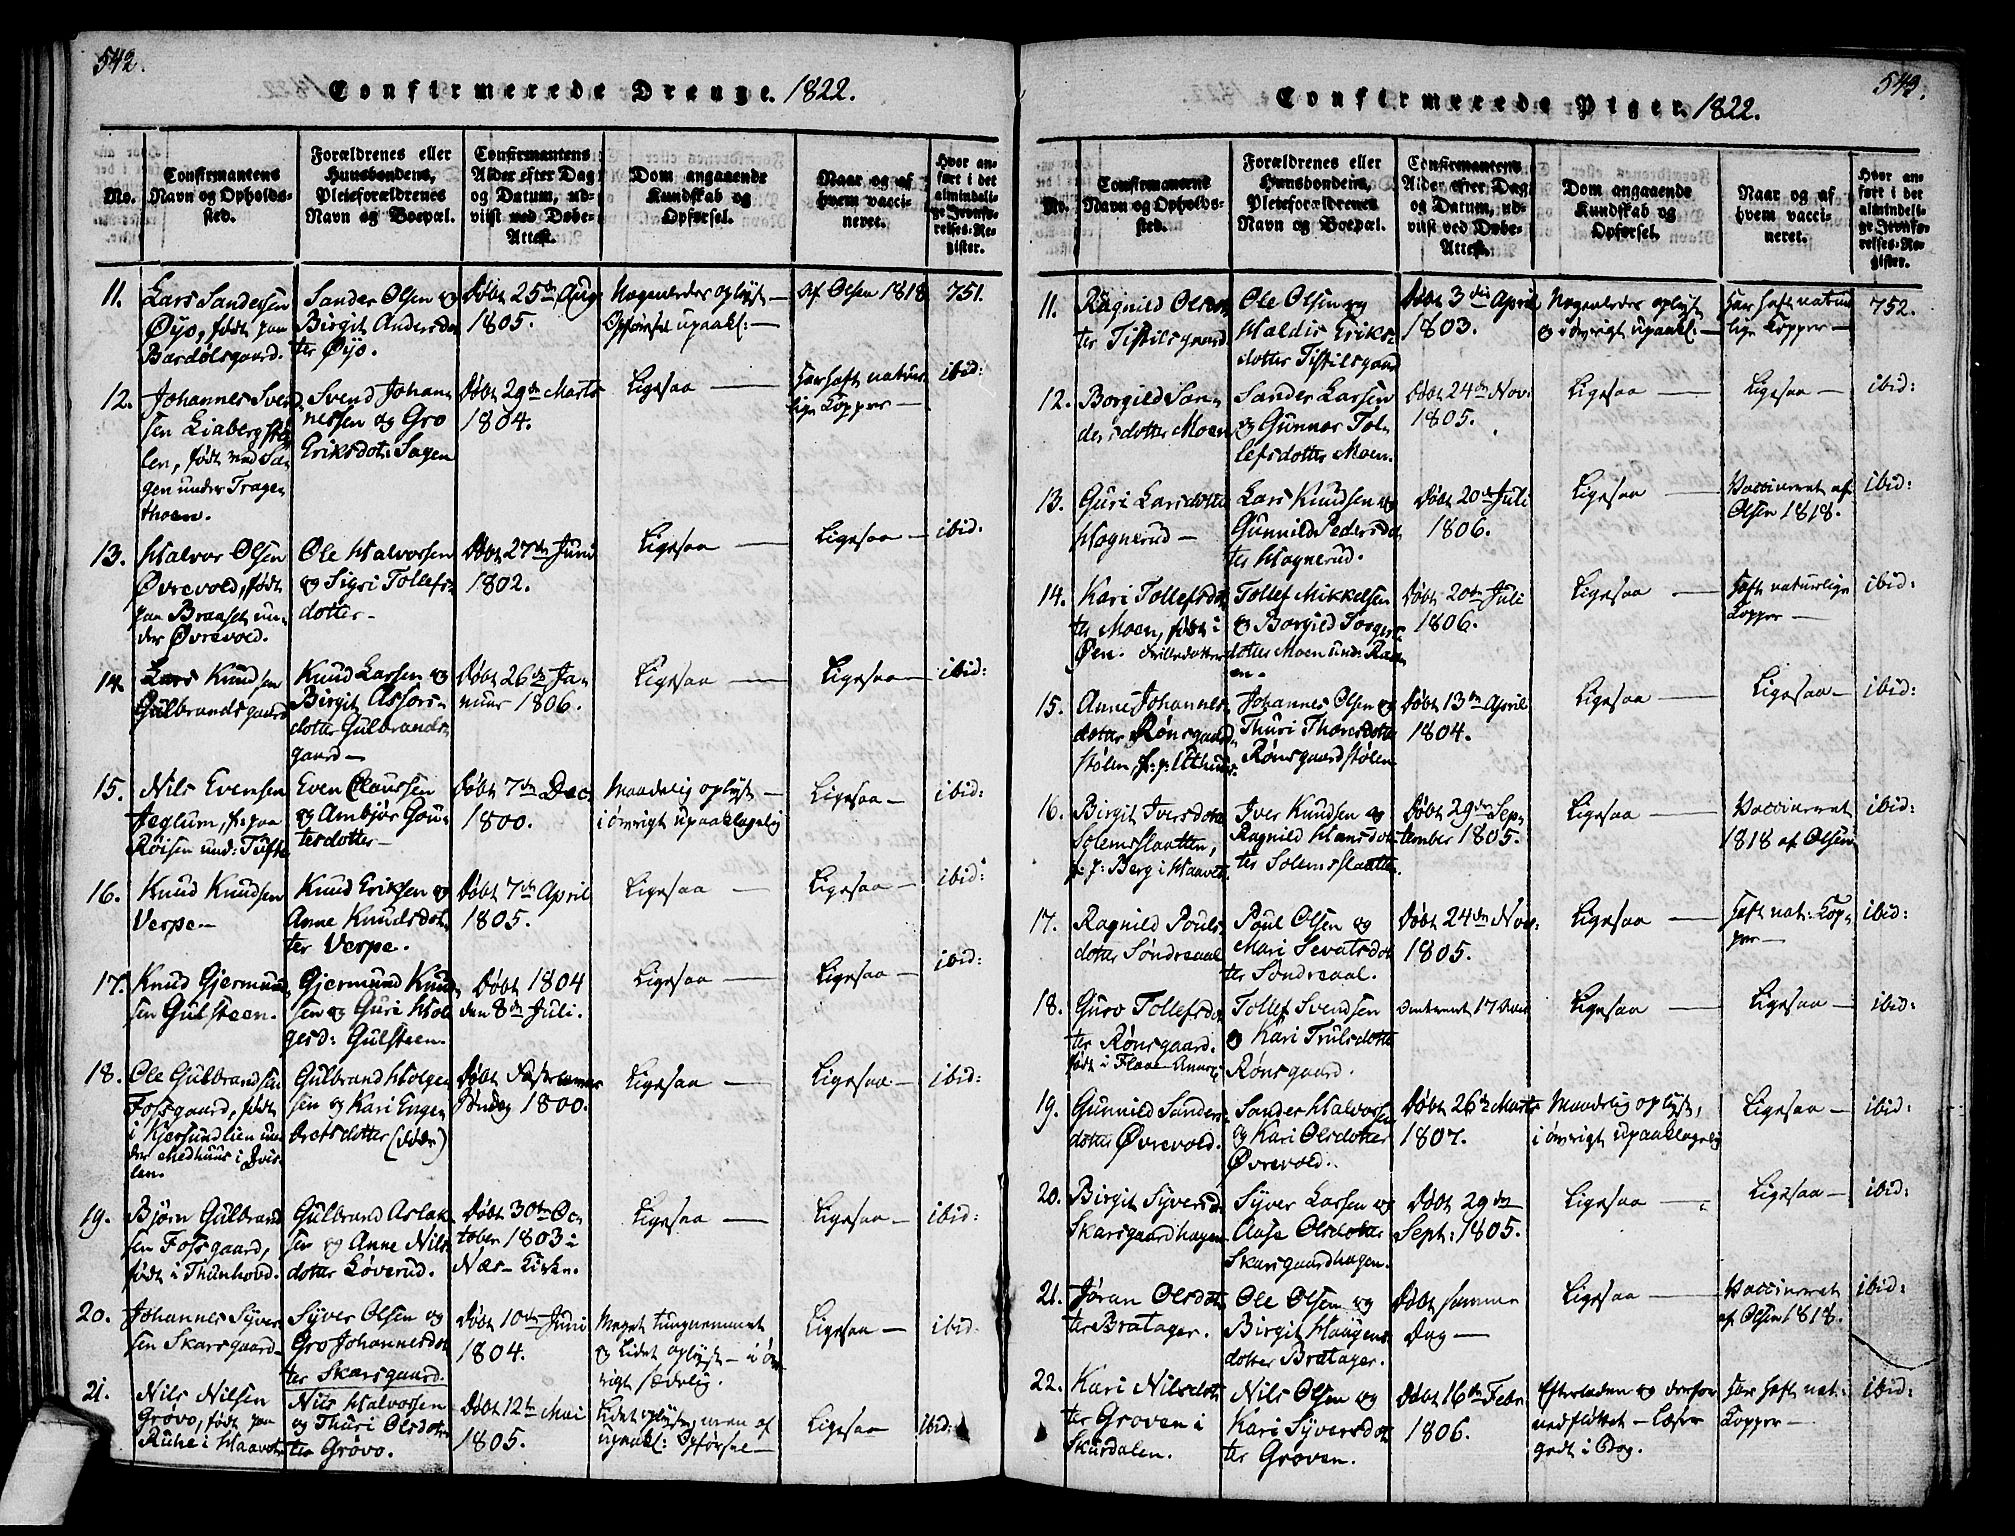 542.
Confirmerede Drenge. 1822.
No.
Confirmantens
Navn og Opholds-
sted.
Forældrenes eller
Huusbondens,
Pleieforældrenes
Navn og Boepæl.
Confirmantens
Alder efter Dag
og Datum, ud-
viist ved Døbe-
Attest.
Dom angaaende
Kundskab og
Opførsel.
Naar og af
hvem vacci-
neret.
Hvor an-
ført i det
almindeli-
ge Jevnfø-
relses-Re-
gister.
11.
Lars Sandersen
Øijo, født paa
Bardølsgaard.
Sander Olsen og
Birgit Andersdo
ter Øijo.
Døbt 25de Aug
1805.
Nogenledes oplyst —
Opførsel upaakl: —
Af Olsen 1818
751.
12.
Johannes Svend
sen Liaberg
len, født ved Sa-
gen under Tragen
thoen.
Svend Johan
nessen og Gro
Eriksdot: Sagen
Døbt 29de Marts
1804.
Ligesaa —
Har haft natur
lige Kopper —
ibid:
13.
Halvor Olsen
Øvrevold, født
paa Braaset un-
der Øvrevold.
Ole Halvorsen
og Sigri Tollefs-
dotter —
Døbt 27de Juni
1802.
Ligesaa —
Ligesaa —
ibid:
14.
Lars Knudsen
Gulbrandsgaard
Knud Larsen og
Birgit Assors-
dotter Gulbrands-
gaard —
Døbt 26de Ja-
nuar 1806.
Ligesaa —
Ligesaa —
ibid:
15.
Nils Evensen
Jeglum, f: paa
Røisen und: Tufte
Even Claussen
og Ambjør Gou-
tersdotter —
Døbt 7de Dec.
1800.
Maadelig oplyst —
i øvrigt upaaklagelig
Ligesaa —
ibid:
16.
Knud Knudsen
Verpe —
Knud Eriksen og
Anne Knudsdot
ter Verpe.
Døbt 7de April
1805.
Ligesaa —
Ligesaa —
ibid:
17.
Knud Gjermund
sen Gulsteen.
Gjermund Knud
sen og Guri Hol
gersd: Gulsteen.
Døbt 1804
den 8de Juli.
Ligesaa —
Ligesaa —
ibid:
18.
Ole Gulbrandsen
Fossgaard, født
i Kjersundlien un
der Medhuus i
len.
Gulbrand Holgen
sen og Kari Engen
bretsdotter (døde)
Døbt
Søndag 1800.
Ligesaa —
Ligesaa —
ibid:
19.
Bjørn Gulbrand
sen Fossgaard,
født i Thunhovd.
Gulbrand Aslak
sen og Anne Nils
dotter Løverud.
Døbt 30te Oc
tober 1803 i
Næs Kirke.
Ligesaa —
Ligesaa —
ibid:
20.
Johannes Syver
sen Skarsgaard
Syver Olsen og
Gro Johannesdot
ter Skarsgaard.
Døbt 10de Juni
1804.
Meget tungnemmet
og lidet oplyst — i øv
rigt sædelig.
Ligesaa —
ibid:
21.
Nils Nilsen
Grøvo, født paa
Ruhe i Haavet
Nils Halvorsen
og Thuri Olsdot
ter Grøvo.
Døbt 12te Mai
1805.
Lidet oplyst, men af
upaakl: Opførsel —
Ligesaa
ibid:
543.
Confirmerede Piger. 1822.
No.
Confirmanens
Navn og Opholds-
sted.
Forældrenes eller
Huusbondens,
Pleieforældrenes
Navn og Boepæl.
Confirmantens
Alder efter Dag
og Datum, ud-
viist ved Døbe-
Attest.
Dom angaaende
Kundskab og
Opførsel.
Naar og af
hvem vacci-
neret.
Hvor an-
ført i det
almindeli-
ge Jevnfø-
relses-Re-
gister.
11.
Ragnild Olsdot
ter Tistilsgaard
Ole Olsen og
Haldis Eriks
dotter Tistilsgaard
Døbt 3die April
1803.
Nogenledes oplyst
og i øvrigt upaakl —
Har haft natur
lige Kopper —
752.
12.
Borgild San-
dersdotter Moen
Sander Larsen
og Gunnor Tol-
lefsdotter Moen.
Døbt 24de Nov:
1805.
Ligesaa —
Ligesaa —
ibid:
13.
Guri Larsdotter
Hognerud —
Lars Knudsen og
Gunnild Pedersdot
ter Hognerud.
Døbt 20de Juli
1806.
Ligesaa —
Vaccineret af
Olsen 1818.
ibid:
14.
Kari Tollefsdot
ter Moen, født i
Øen.
Tollef Mikkelsen
og Borgild
dotter Moen und:
en.
Døbt 20de Juli
1806.
Ligesaa —
Haft naturlige
Kopper —
ibid:
15.
Anne Johannes
dotter Rønsgaard
stølen,
Johannes Olsen og
Thuri Thoresdotter
Rønsgaardstølen
Døbt 13de April
1804.
Ligesaa —
Ligesaa —
ibid:
16.
Birgit Iversdotter
Solemsslaatten,
f: p: Berg i Haavet
Iver Knudsen og
Ragnild Hansdot
ter Solemsslaatten
Døbt 29de Sep-
tember 1805.
Ligesaa —
Vaccineret
1818 af Olsen
ibid:
17.
Ragnild Pouls-
dotter Søndreaal
Poul Olsen og
Mari Sevatsdot
ter Søndreaal.
Døbt 24de Nov:
1805.
Ligesaa —
Haft nat: Kop-
per —
ibid:
18.
Guro Tollefsdot
ter Rønsgaard.
født i Flaae
Tollef Svendsen
og Kari Trulsdotter
Rønsgaard.
Ligesaa —
Ligesaa —
ibid:
19.
Gunnild Sanders
dotter Øvrevold.
Sander Halvorsen
og Kari Olsdotter
Øvrevold.
Døbt 26de Marts
1807.
Maadelig oplyst,
i øvrigt upaaklagelig
Ligesaa —
ibid:
20.
Birgit Syversd
Skarsgaardhagen
Syver Larsen og
Aase Olsdotter
Skarsgaardhagen.
Døbt 29de
Sept: 1805.
Ligesaa —
Ligesaa —
ibid:
21.
Jøran Olsdot
ter Bratager.
Ole Olsen og
Birgit Haagens
dotter Bratager.
Døbt samme
Dag —
Ligesaa —
Vaccineret
af Olsen 1818.
ibid:
22.
Kari Nilsdot
ter Grøven i
Skurdalen.
Nils Olsen og
Kari Syversdot
ter Grøven.
Døbt 16de Febr
1806.
Efterladen og derfor
nedflyttet — Læser
godt i Bog.
Har haft nat:
Kopper —
ibid: